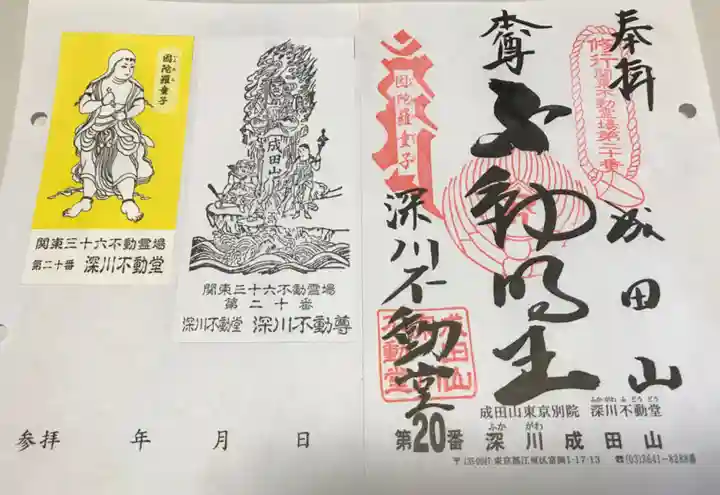 奉拝
成田山
修行
関東不動霊場第二十番
本尊
不動明王
因陀羅童子
深川不動堂
成田山
深川
不動堂
成田山東京別院 深川不動堂
ふかがわふどうどう
第20番 深川成田山
ふか がわ
〒135-0047・東京都江東区富岡1-17-13 ☎(03)3641-8288番
因陀羅童子
関東三十六不動霊場
第二十番 深川不動堂
成田山
関東三十六不動霊場
第二十番
深川不動堂 深川不動尊
参拝 年 月 日